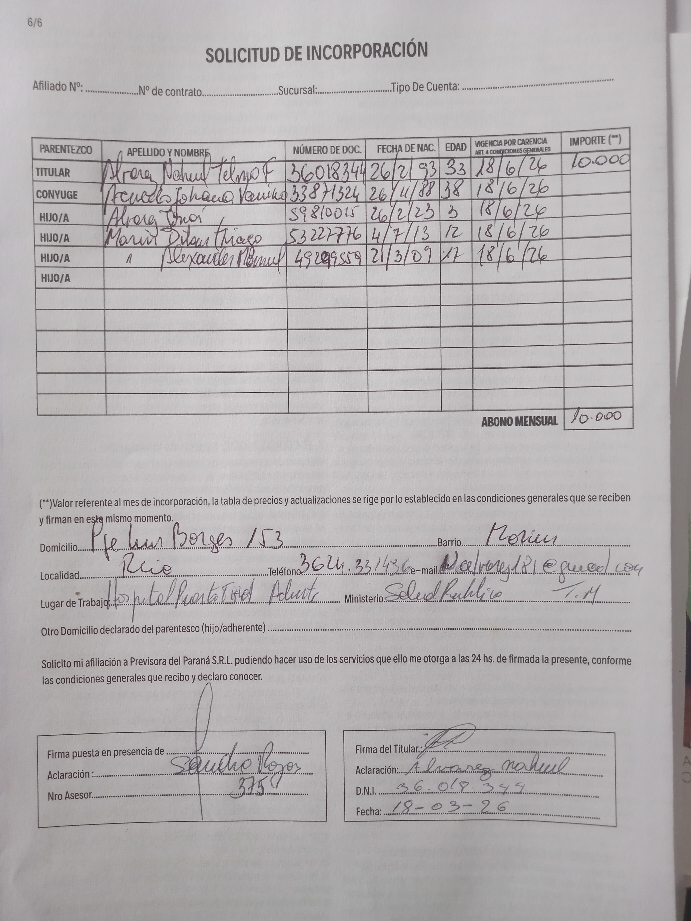 6/6
SOLICITUD DE INCORPORACIÓN
Afiliado Nº: Nº de contrato Sucursal: Tipo De Cuenta:
PARENTEZCO APELLIDO Y NOMBRE NÚMERO DE DOC. FECHA DE NAC. EDAD VIGENCIA POR CARENCIA ART. 4 CONDICIONES GENERALES IMPORTE (**)
TITULAR Nahuel 36018344 26/2/93 33 18/6/26 10.000
CONYUGE Johana 33871324 26/11/88 38 18/6/26
HIJO/A 59810015 26/2/23 3 18/6/26
HIJO/A Thiago 53227776 4/7/13 12 18/6/26
HIJO/A " Alexander 21/3/09 17 18/6/26
HIJO/A
ABONO MENSUAL 10.000
(**)Valor referente al mes de incorporación, la tabla de precios y actualizaciones se rige por lo establecido en las condiciones generales que se reciben
y firman en este mismo momento.
Domicilio Pje Luis Borges 153 Barrio
Localidad Rcia Teléfono e-mail
Lugar de Trabajo Hospital Ministerio Salud Publica T.M
Otro Domicilio declarado del parentesco (hijo/adherente)
Solicito mi afiliación a Previsora del Paraná S.R.L. pudiendo hacer uso de los servicios que ello me otorga a las 24 hs. de firmada la presente, conforme
las condiciones generales que recibo y declaro conocer.
Firma puesta en presencia de
Aclaración : Rojas
Nro Asesor 375
Firma del Titular:
Aclaración: Alvarez nahuel
D.N.I. 36.018.344
Fecha: 18-03-26